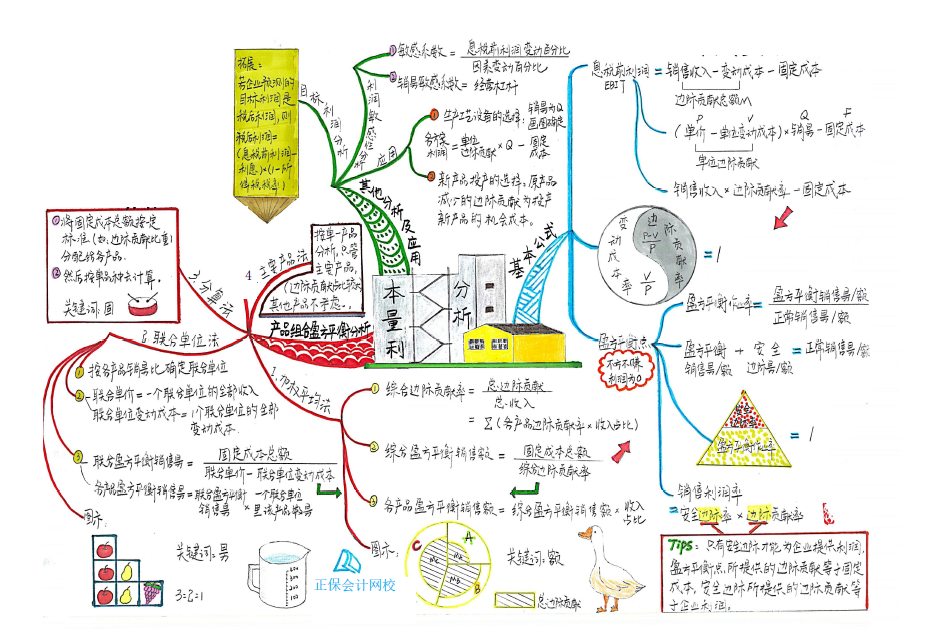 拓展:
若企业预测的
目标利润是
税后利润,则
税后利润=
(息税前利润-
利息)×(1-所
得税税率)
目标利润分析
利润敏感性分析
应用
其他分析及应用
①敏感系数 = 息税前利润变动百分比
因素变动百分比
②销量敏感系数 = 经营杠杆
①生产工艺设备的选择:
销量为Q
各方案利润 = 单位边际贡献 × Q - 固定成本
②新产品投产的选择:原产品
减少的边际贡献为投产
新产品的机会成本。
本量利
分析
基本公式
息税前利润 = 销售收入 - 变动成本 - 固定成本
EBIT
边际贡献总额M
P V Q F
(单价 - 单位变动成本) × 销量 - 固定成本
单位边际贡献
销售收入 × 边际贡献率 - 固定成本
变动成本率
V
P
边际贡献率
P-V
P
= 1
盈亏平衡点
不亏不赚
利润为0
盈亏平衡作业率 = 盈亏平衡销售量/额
正常销售量/额
盈亏平衡 + 安全 = 正常销售量/额
销售量/额 边际量/额
安全
边际率
盈亏平衡作业率
= 1
销售利润率
= 安全边际率 × 边际贡献率
Tips: 只有安全边际才能为企业提供利润,
盈亏平衡点所提供的边际贡献等于固定
成本,安全边际所提供的边际贡献等
于企业利润。
产品组合盈亏平衡分析
4.主要产品法
按单一产品
分析,只管
主要产品,
(边际贡献占比较大)
其他产品不考虑...
3.分算法
①将固定成本总额按一定
标准(如:边际贡献比重)
分配给各产品.
②然后按单品种去计算。
关键词:固
2.联合单位法
①按各产品销量比确定联合单位
②联合单价 = 一个联合单位的全部收入
联合单位变动成本 = 1个联合单位的全部
变动成本.
③联合盈亏平衡销售量 = 固定成本总额
联合单价 - 联合单位变动成本
各产品盈亏平衡销售量 = 联合盈亏平衡销售量 × 一个联合单位里该产品的量
图示:
关键词:量
3:2:1
400
300
200
100
正保会计网校
1.加权平均法
①综合边际贡献率 = 总边际贡献
总收入
= Σ(各产品边际贡献率 × 收入占比)
②综合盈亏平衡销售额 = 固定成本总额
综合边际贡献率
③各产品盈亏平衡销售额 = 综合盈亏平衡销售额 × 收入占比
图示:
C A B
关键词:额
总边际贡献